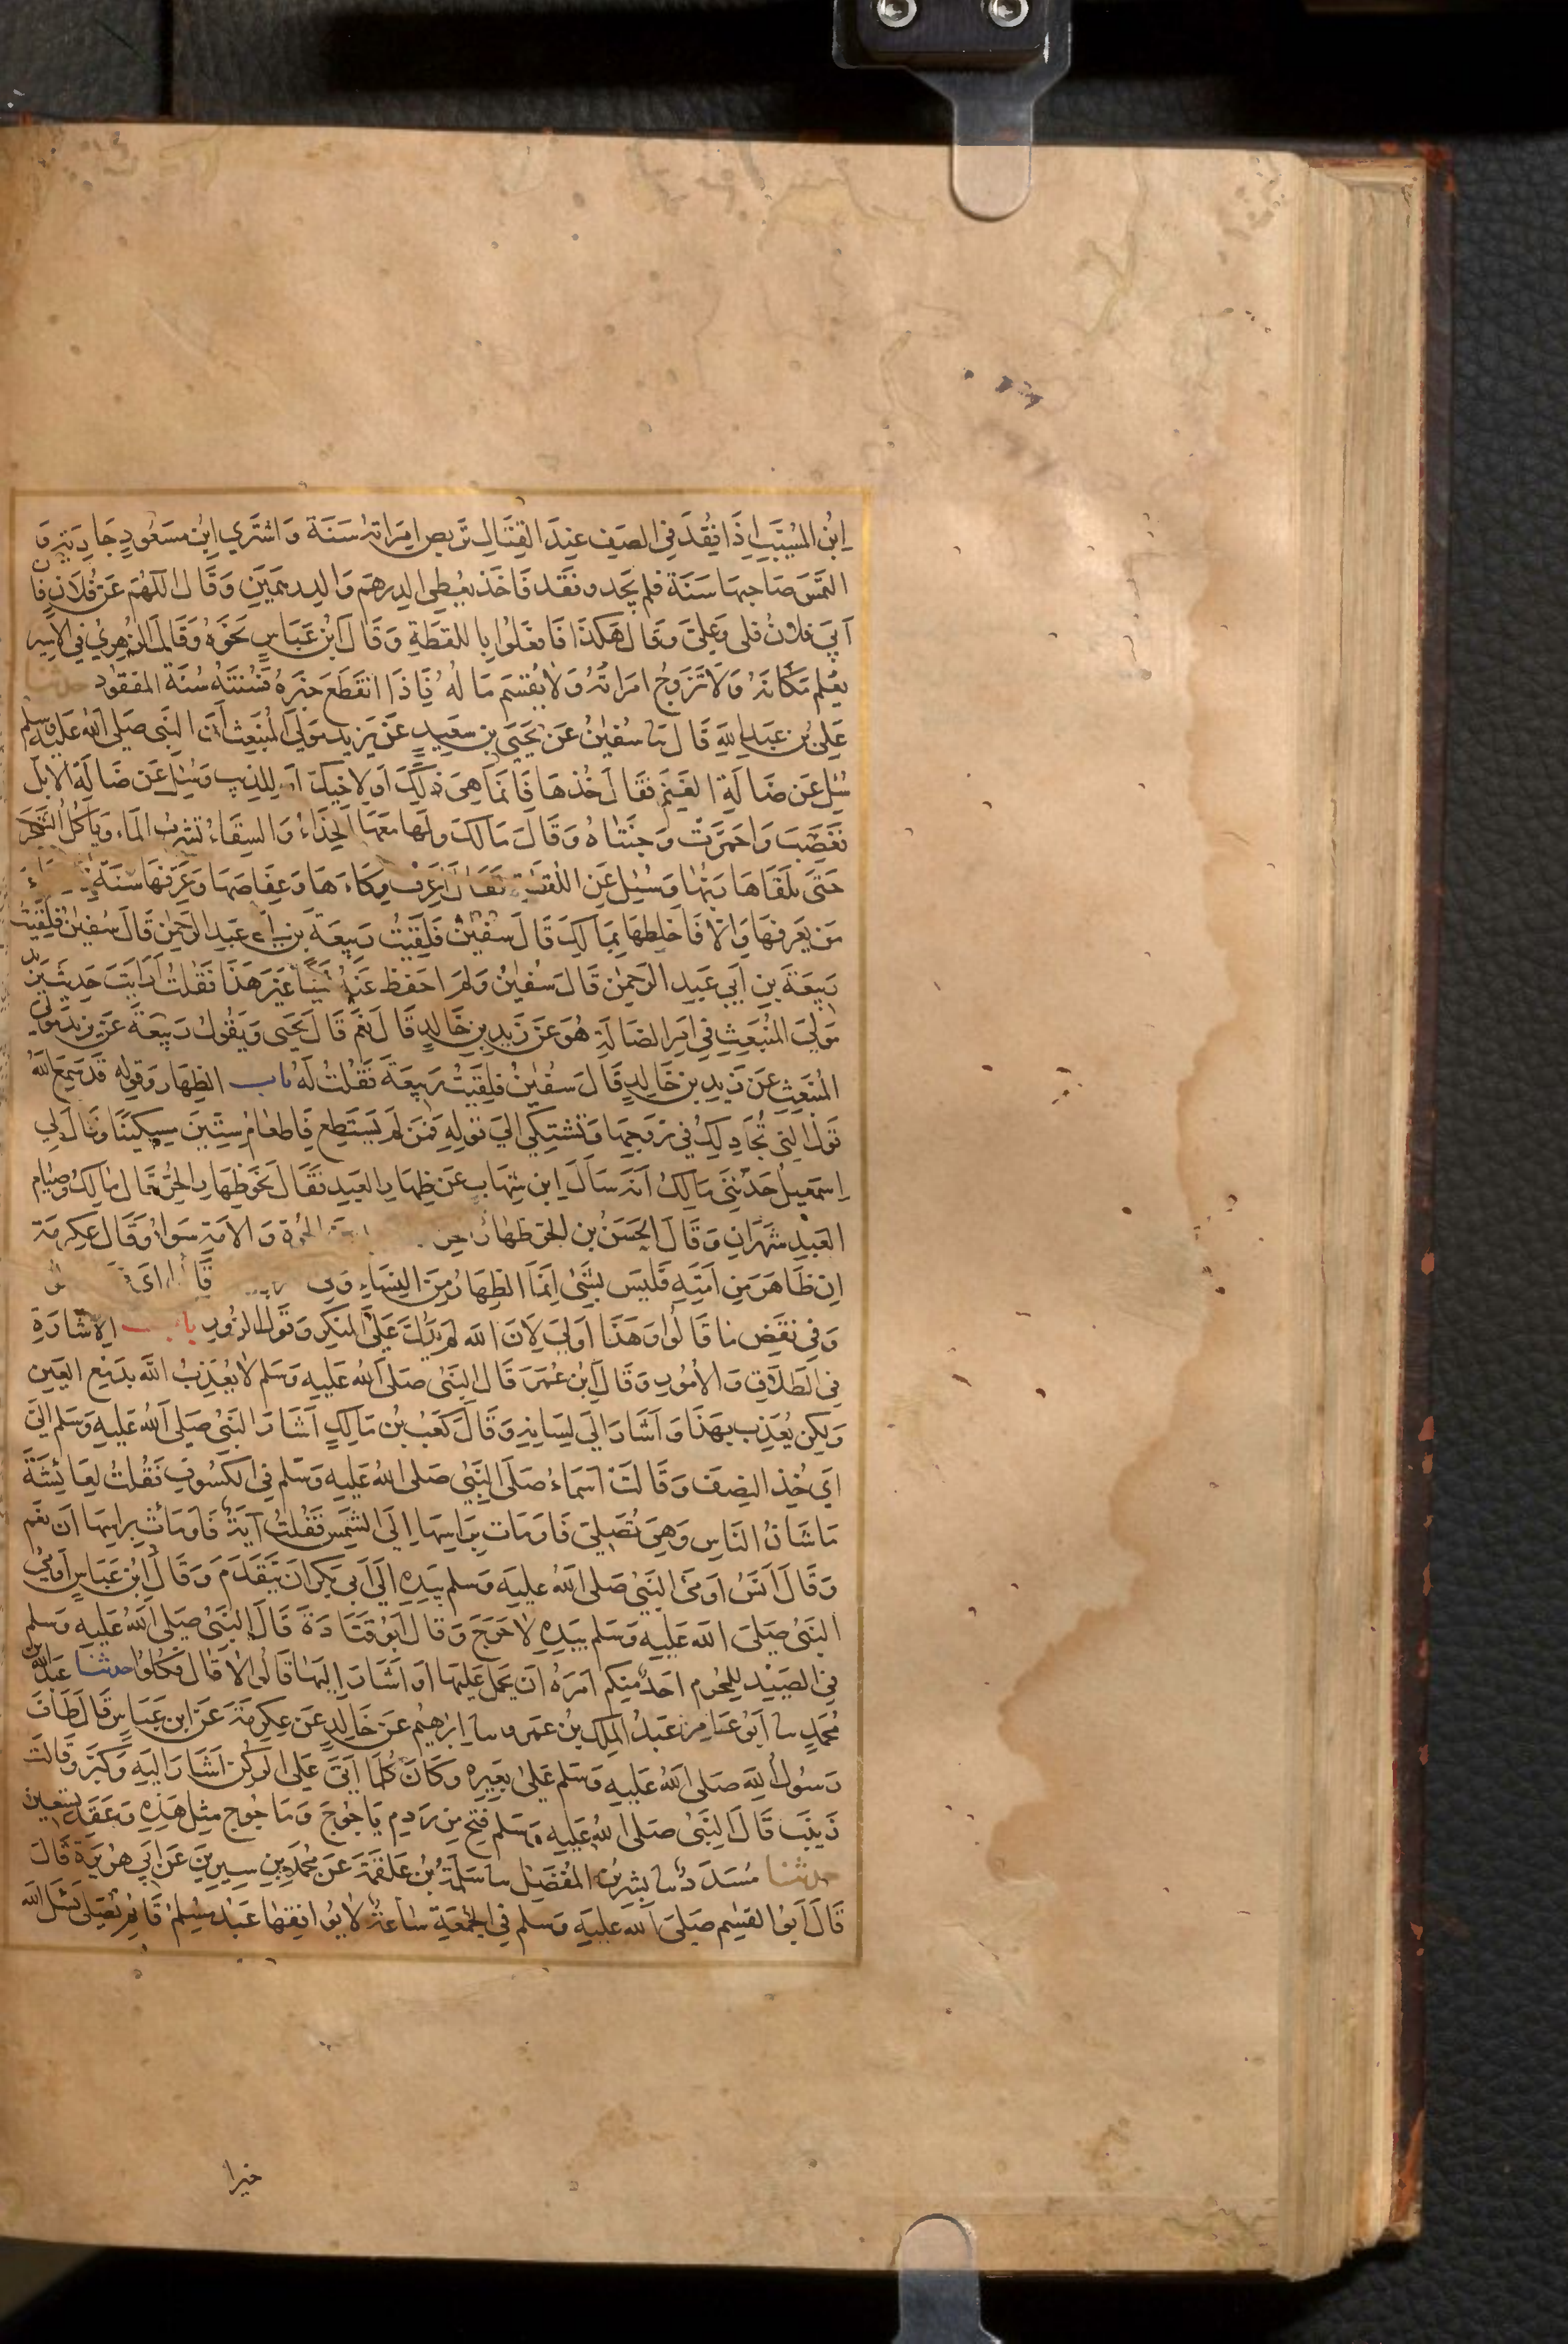 ابْنُ المُسَيَّبِ اِذَا فُقِدَ فِى الصَّفِ عِنْدَ القِتَالِ تَرَبَّص امْرَاَتُهُ سَنَةً وَاشْتَرِي ابْنُ مَسْعُودٍ جَارِيَةً وَ
التَمَسَ صَاحِبهَا سَنَةً فلم يَجِد وفُقد فَاَخَذَ يُعْطِى الدِرهَم وَالدِرهَمَيْنِ وَقَالَ اللّهُمَ عَنْ فُلَانٍ فَاِ
اَبَى فلانٌ فلى وَعَلىَّ وَقَالَ هَكَذَا فَافْعَلُوا بِاللقطَةِ وَقَالَ ابْن عَبَاسٍ نَحْوَهُ وَقَالَ الزُهْرِيُ فِي الاسِير
يُعْلَم مَكَانَهُ وَلَا تَزَوَّجُ امْرَاَتُهُ وَلَا يُقْسَم مَا لُهُ فَاِذَا انْقَطَعَ خَبَرُهُ فَسُنَّتُهُ سُنَّةُ المفقود حدثنا
عَلِىُ بْن عَبْدِ اللهِ قَالَ ثنا سُفيٰنُ عَنْ يَحْيَى بن سَعِيدٍ عَنْ يَزِيد مَوْلَى المُنْبَعِثِ اَنَّ النَّبِى صَلى اللهُ عَليْه وسلم
سُئِلَ عَن ضَالَةِ الغَنَمِ فَقَالَ خُذهَا فَاِنَّمَا هِىَ لَكَ اَو لِاَخِيكَ اَو لِلذِيبِ وَسُئِلَ عَن ضَالَةِ الاِبل
فَغَضِبَ وَاحْمَرَّتْ وَجْنَتَاهُ وَقَالَ مَالَكَ وَلَهَا مَعَهَا الحِذَاءُ وَالسِقَاءُ تَشرَبُ المَاء وَيَأكُلُ الشَجَرَ
حَتَّى يَلْقَاهَا رَبُّهَا وَسُئِل عَنِ اللُقَطَةِ فَقَالَ اعْرِفْ وِكَاءَهَا وَعِفَاصَهَا وَعَرِّفهَا سَنَةً
مَن يَعْرفهَا وَالّا فَاخلِطهَا بِمَالِكَ قَالَ سفيٰنُ فَلَقِيتُ رَبِيعَةَ بن ابى عَبدِ الرَحمٰن قَالَ سُفيٰنُ فلقيت
رَبِيعَةَ بنِ اَبي عَبدِ الرَحمٰنِ قَالَ سُفيٰنُ وَلَم اَحفَظ عَنهُ شَيئًا غَيْرَ هَذَا فَقلْتُ اَرَاَيتَ حَدِيثَ يزيد
مَوْلى المُنْبَعِثِ فِى اَمرِ الضَالَةِ هُوَ عَن زَيدِ بنِ خَالِدٍ قَالَ نَعَم قَالَ يَحيى وَيَقُولُ رَبِيعَةُ عَن يزيد مَوْلى
المُنبَعِثِ عَن زَيدِ بنِ خَالِدٍ قَالَ سُفيٰنُ فلَقِيتُ رَبيعَةَ فَقُلتُ لَهُ باب الظِهَارِ وَقَولِه قَدْ سَمِعَ اللهُ
قَولَ الّتِى تُجَادِلُكَ فِى زَوجِهَا وَتَشتَكِي الي قَولِهِ فَمَن لَم يَستَطِع فَاِطعَامُ سِتِّينَ مِسكِينًا وَقَالَ لِي
اِسمٰعِيلُ حَدَّثَنِى مَالِكٌ اَنَّهُ سَاَلَ ابْن شِهَابٍ عَن ظِهَارِ العَبدِ فَقَالَ نَحو ظِهَارِ الحُرِّ قَالَ مَالِكٌ وَصِيَام
العَبدِ شَهرَانِ وَقَالَ الحَسَنُ بن الحر ظهَارُ الحر الحُرَّة وَ الامَةِ سَوَاءٌ وَقَالَ عِكرِمَة
اِن ظَاهَرَ مِن اَمَتِه فَلَيسَ بِشَىْءٍ اِنَّمَا الظِهَارُ مِنَ النِسَاءِ وَفِى
وَفِي نَقْضِ مَا قَالُوا وَهَذَا اَولَى لِاَنَّ اللهَ لَم يَدُلَّ عَلَى المُنكَرِ وَقَولِ الزُورِ باب الِاشَارَةِ
فِى الطَلَاقِ وَالاُمُورِ وَقَالَ ابْن عُمَرَ قَالَ النَّبِىُ صَلَى اللهُ عَلَيهِ وَسَلم لَا يُعَذِبُ اللهُ بِدَمعِ العَينِ
وَلَكِن يُعَذِب بِهَذَا وَاَشَارَ اِلَى لِسَانِهِ وَقَالَ كَعبُ بْن مَالِكٍ اَشَارَ النَبِىُ صَلى اللهُ عَلَيهِ وَسَلم اِلىَّ
اَي خُذِ النِصفَ وَقَالَتْ اَسمَاءُ صَلَى النَّبِىُ صَلى اللهُ عَلَيهِ وَسَلم فِى الكُسُوفِ فَقُلتُ لِعَائِشَةَ
مَا شَانُ النَاسِ وَهِىَ تُصَلِىّ فَاَومَات بِرَاسِهَا اِلَى الشَمسِ فَقُلتُ آيَةٌ فَاَومَاتْ بِرَاسِهَا اَن نعَم
وَقَالَ اَنَسٌ اَومَى النَّبِىُ صَلى اللهُ عَلَيهِ وَسَلم بِيَدِهِ اِلَى اَبِى بَكرٍ اَن يَتَقَدَمَ وَقَالَ ابْن عَبَاسٍ اَومى
النَبىُ صَلىَ اللهُ عَلَيهِ وَسَلم بِيَدِهِ لَا حَرَجَ وَقَالَ اَبُو قَتَادَةَ قَالَ النَّبىُ صَلى اللهُ عَلَيهِ وَسَلم
فِى الصَيْدِ لِلمُحرِمِ اَحَدٌ مِنكُم اَمَرَهُ اَن يَحمِلَ عَلَيهَا اَو اَشَارَ اِلَيهَا قَالُوا لَا قَالَ فَكُلُوا حدثنا عَبدُ اللهِ بْن
مُحَمدٍ ثنا اَبُو عَامِرٍ عَبدُ المَلِكِ بْن عَمرو ثنا اِبرٰهِيمُ عَن خَالِدٍ عَن عِكرِمَةَ عَنِ ابنِ عَبَاسٍ قَالَ طَافَ
رَسُولُ اللهِ صَلى اللهُ عَلَيهِ وَسَلم عَلىٰ بَعِيرِهِ وَكَانَ كُلَّمَا اَتَى عَلَى الرُكنِ اَشَارَ اِلَيهِ وَكَبَّرَ وَقَالَت
زَينَبُ قَالَ النَّبىُ صَلى اللهُ عَلَيهِ وَسَلم فُتِحَ مِن رَدمِ يَاجُوجَ وَمَاجُوج مِثلُ هَذِهِ وَعَقَدَ تِسعِينَ
حدثنا مُسَدَدٌ ثنا بِشرُ بْن المُفَضَلِ ثنا سَلَمَةُ بْنُ عَلقَمَةَ عَن مُحَمَدِ بنِ سِيرِينَ عَن اَبِى هُرَيرَةَ قَالَ
قَالَ اَبُو القٰسِمِ صَلى اللهُ عَلَيهِ وَسَلم فِى الجُمُعَةِ سَاعَةٌ لَا يُوَافِقهَا عَبدٌ مُسلِمٌ قَائِمٌ يُصَلِى يَسئَل اللهَ
خيرا